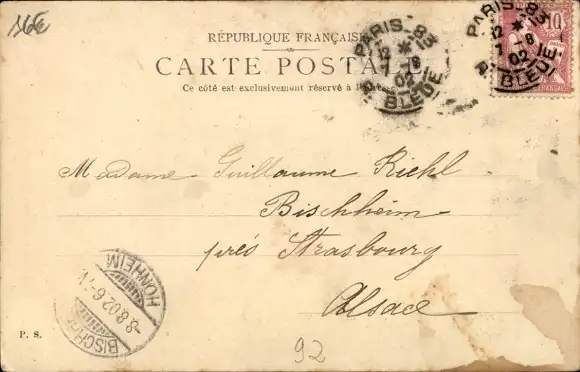 16€
RÉPUBLIQUE FRANÇAISE
CARTE POSTALE
Ce côté est exclusivement réservé à l'adresse
PARIS-83
12 * 
7 - 8
02
R. BLEUE
PARIS-83
12 *
7 - 8
02
R. BLEUE
10
Madame Guillaume Riehl
Bischheim
près Strasbourg
Alsace
BISCHH
HÖNHEIM
8.8.02.6-7N
P. S.
92